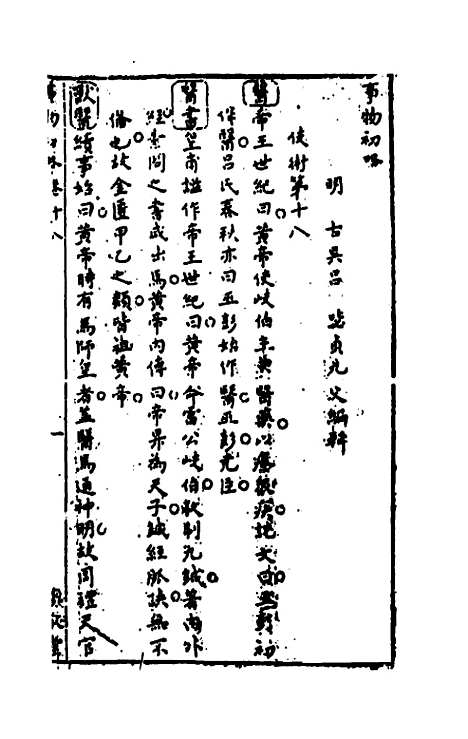 事物初略
明 古吳呂 毖貞九父編輯
伎術第十八
醫帝王世紀曰黃帝使岐伯主典醫藥以療衆疾說文曰巫彭初
作醫呂氏春秋亦曰巫彭始作醫巫彭堯臣
醫書皇甫謐作帝王世紀曰黃帝命雷公岐伯敎制九鍼著內外
經素問之書咸出焉黃帝內傳曰帝昇為天子鍼經脈訣無不
備也故金匱甲乙之類皆祖黃帝
獸醫續事始曰黃帝時有馬師皇者善醫馬通神明故周禮天官
事物初略卷十八
一